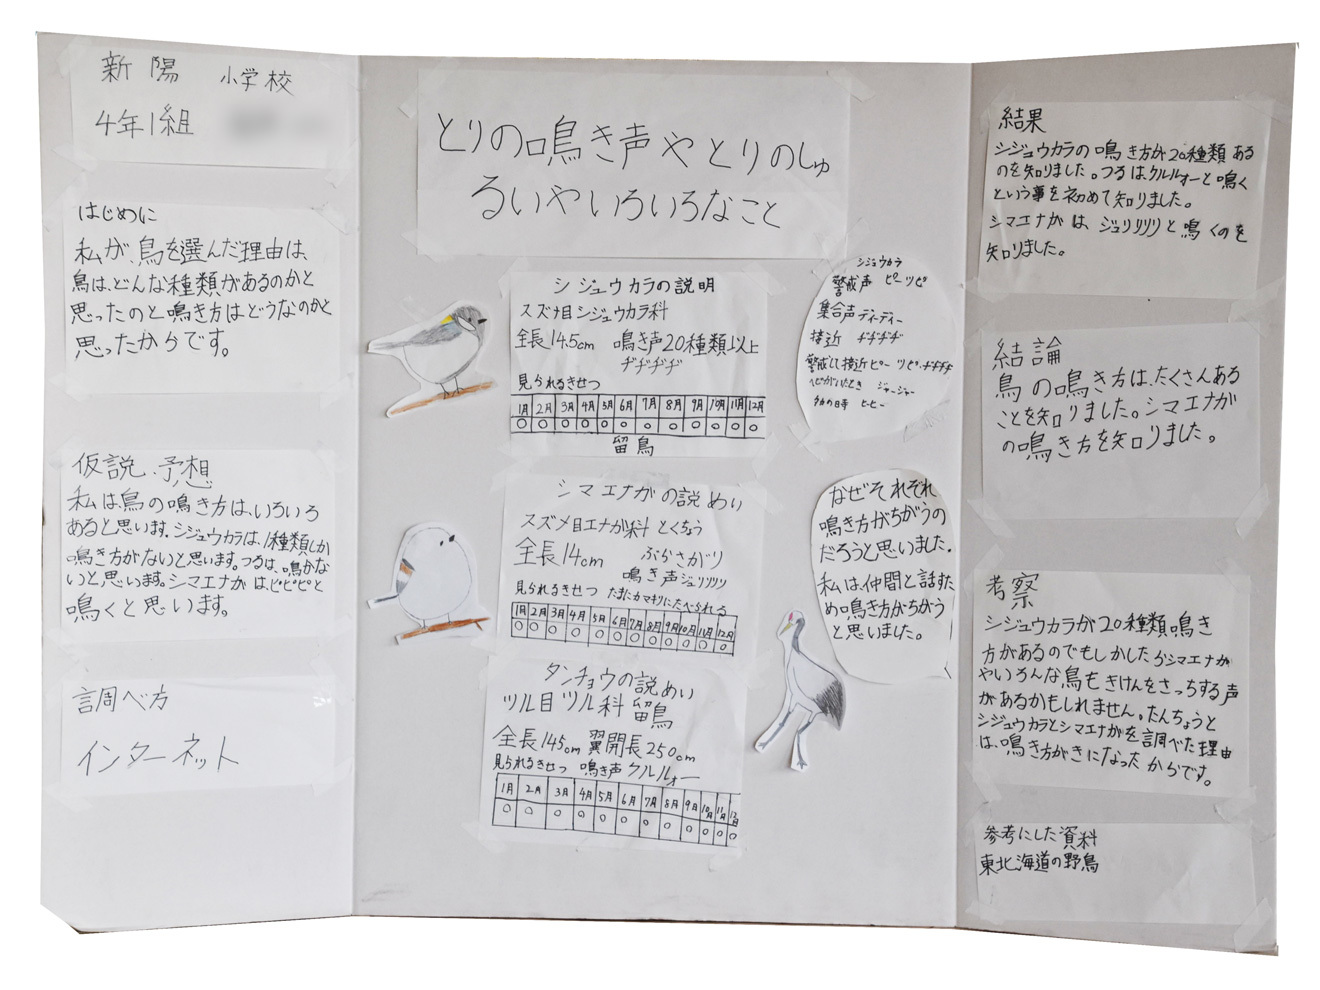 新陽 小学校
4年1組
はじめに
私が、鳥を選んだ理由は、
鳥は、どんな種類があるのかと
思ったのと鳴き方はどうなのかと
思ったからです。
仮説.予想
私は鳥の鳴き方は、いろいろ
あると思います。シジュウカラは、1種類しか
鳴き方がないと思います。つるは、鳴かな
いと思います。シマエナガは、ピピピと
鳴くと思います。
調べ方
インターネット
とりの鳴き声やとりのしゅ
るいやいろいろなこと
シジュウカラの説明
スズメ目シジュウカラ科
全長14.5cm 鳴き声20種類以上
ヂヂヂヂ
見られるきせつ
1月 2月 3月 4月 5月 6月 7月 8月 9月 10月 11月 12月
○ ○ ○ ○ ○ ○ ○ ○ ○ ○ ○ ○
留鳥
シマエナガの説めい
スズメ目エナガ科 とくちょう
全長14cm ぶらさがり
鳴き声ジュリリリリ
見られるきせつ たまにカマキリにたべられる
1月 2月 3月 4月 5月 6月 7月 8月 9月 10月 11月 12月
○ ○ ○ ○ ○ ○ ○ ○ ○ ○ ○ ○
タンチョウの説めい
ツル目ツル科 留鳥
全長145cm 翼開長250cm
見られるきせつ 鳴き声クルルォー
1月 2月 3月 4月 5月 6月 7月 8月 9月 10月 11月 12月
○ ○ ○ ○ ○ ○ ○ ○ ○ ○ ○ ○
シジュウカラ
警戒声 ピーツピ
集合声 ディーディー
接近 ヂヂヂヂ
警戒して接近ピーツピ・ヂヂヂヂ
ヘビがいたとき ジャージャー
タカの時 ヒーヒー
なぜそれぞれ
鳴き方がちがうの
だろうと思いました。
私は、仲間と話すた
め鳴き方がちがう
と思いました。
結果
シジュウカラの鳴き方が20種類ある
のを知りました。つるはクルルォーと鳴く
という事を初めて知りました。
シマエナガは、ジュリリリリと鳴くのを
知りました。
結論
鳥の鳴き方は、たくさんある
ことを知りました。シマエナガ
の鳴き方を知りました。
考察
シジュウカラが20種類鳴き
方があるのでもしかしたらシマエナガ
やいろんな鳥もきけんをさっちする声
があるかもしれません。たんちょうと
シジュウカラとシマエナガを調べた理由
は、鳴き方がきになったからです。
参考にした資料
東北海道の野鳥